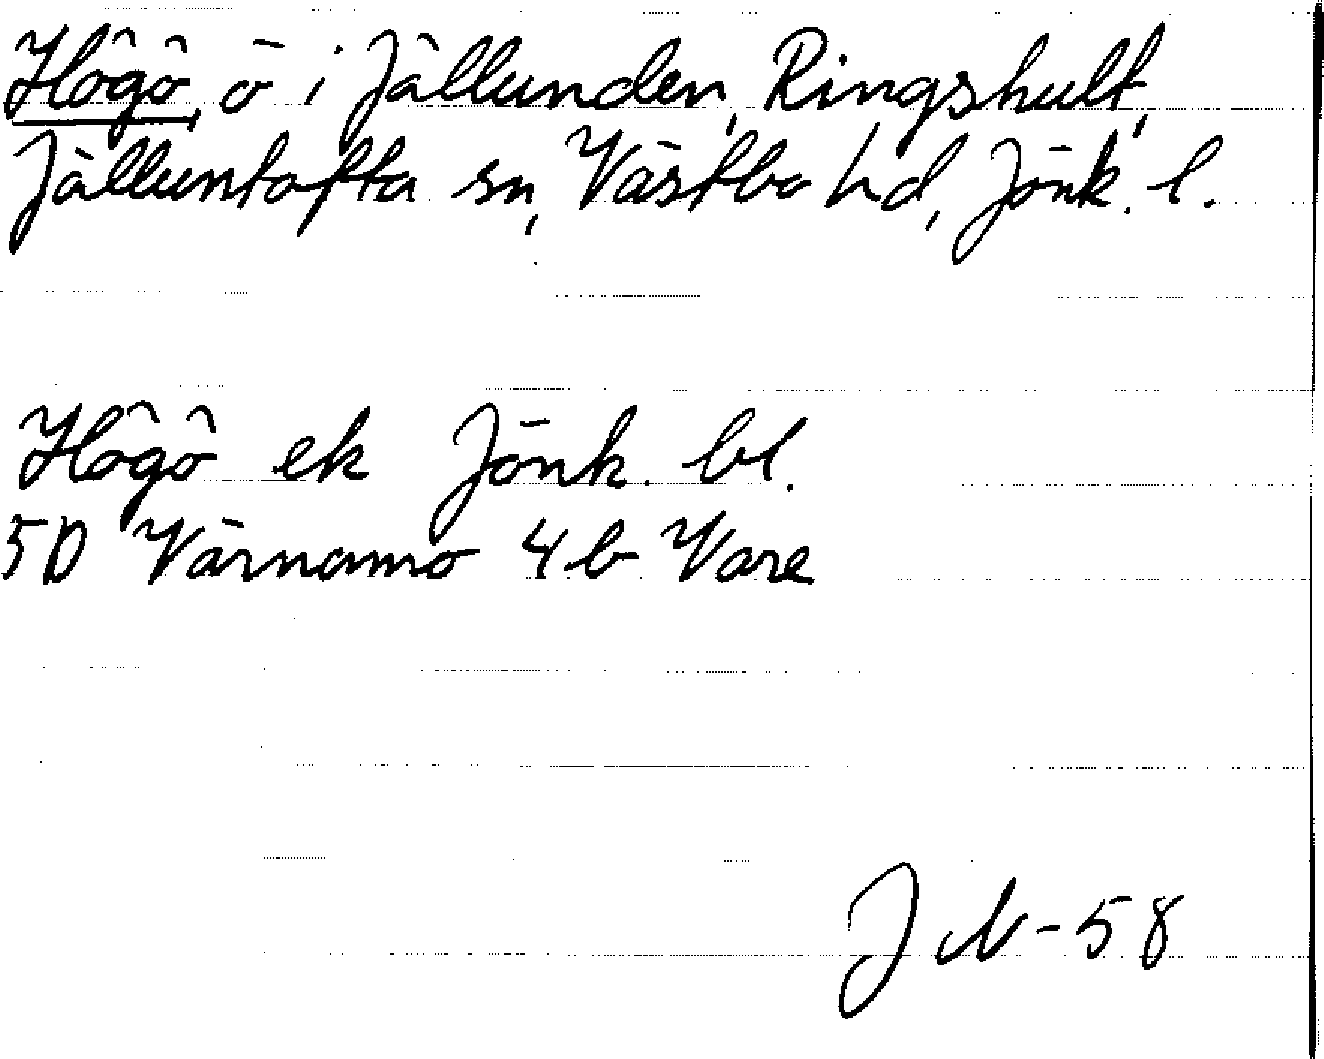 Högö, ö i Jällunden, Ringshult,
Jälluntofta sn, Västbo hd, Jönk. l.
Högö ek Jönk. bl.
5D Värnamo 4b Vare
JN-58